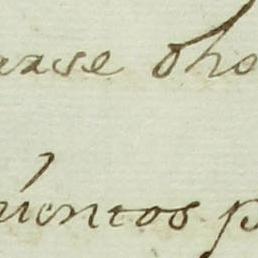 arse dho
uientos p